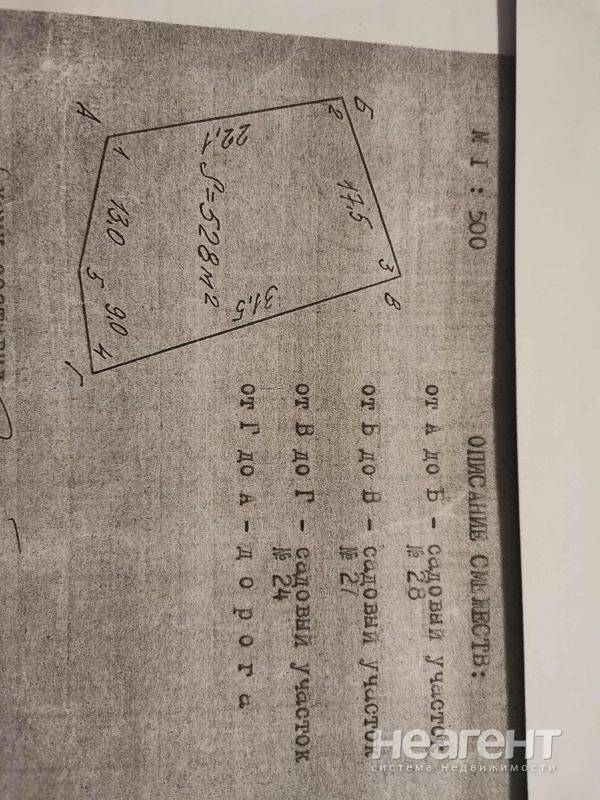 М 1 : 500
ОПИСАНИЕ СМЕЖЕСТВ:
А
Б
В
Г
1
2
3
4
5
22,1
17,5
31,5
9,0
13,0
S=528м2
от А до Б - садовый участок
№ 28
от Б до В - садовый участок
№ 27
от В до Г - садовый участок
№ 24
от Г до А - д о р о г а
неагент
система недвижимости